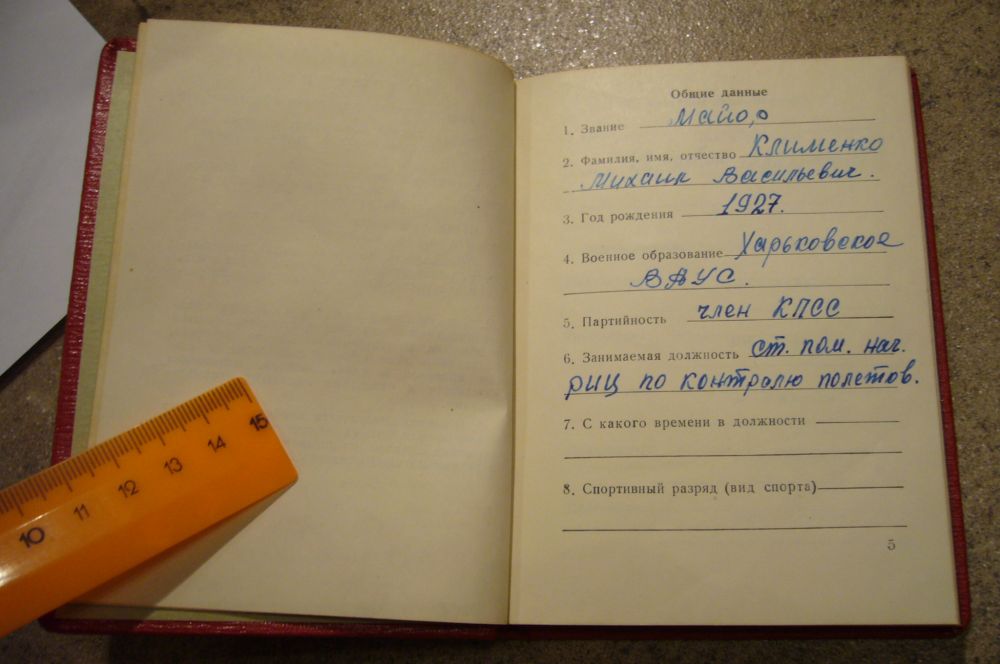 Общие данные
1. Звание Майор
2. Фамилия, имя, отчество Клименко
Михаил Васильевич.
3. Год рождения 1927.
4. Военное образование Харьковское
ВАУС.
5. Партийность член КПСС
6. Занимаемая должность ст. пом. нач.
РИЦ по контролю полетов.
7. С какого времени в должности
8. Спортивный разряд (вид спорта)
5
10 11 12 13 14 15